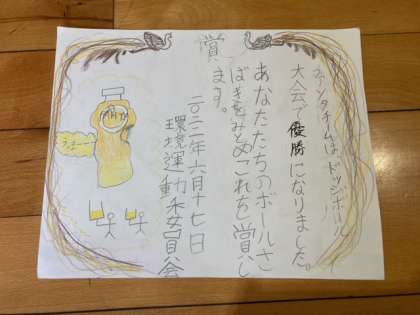 賞
ファンタチームは、ドッジボール
大会で優勝になりました。
あなたたちのボールさ
ばきをみとめこれを賞し
ます。
二〇二二年六月十七日
環境運動委員会